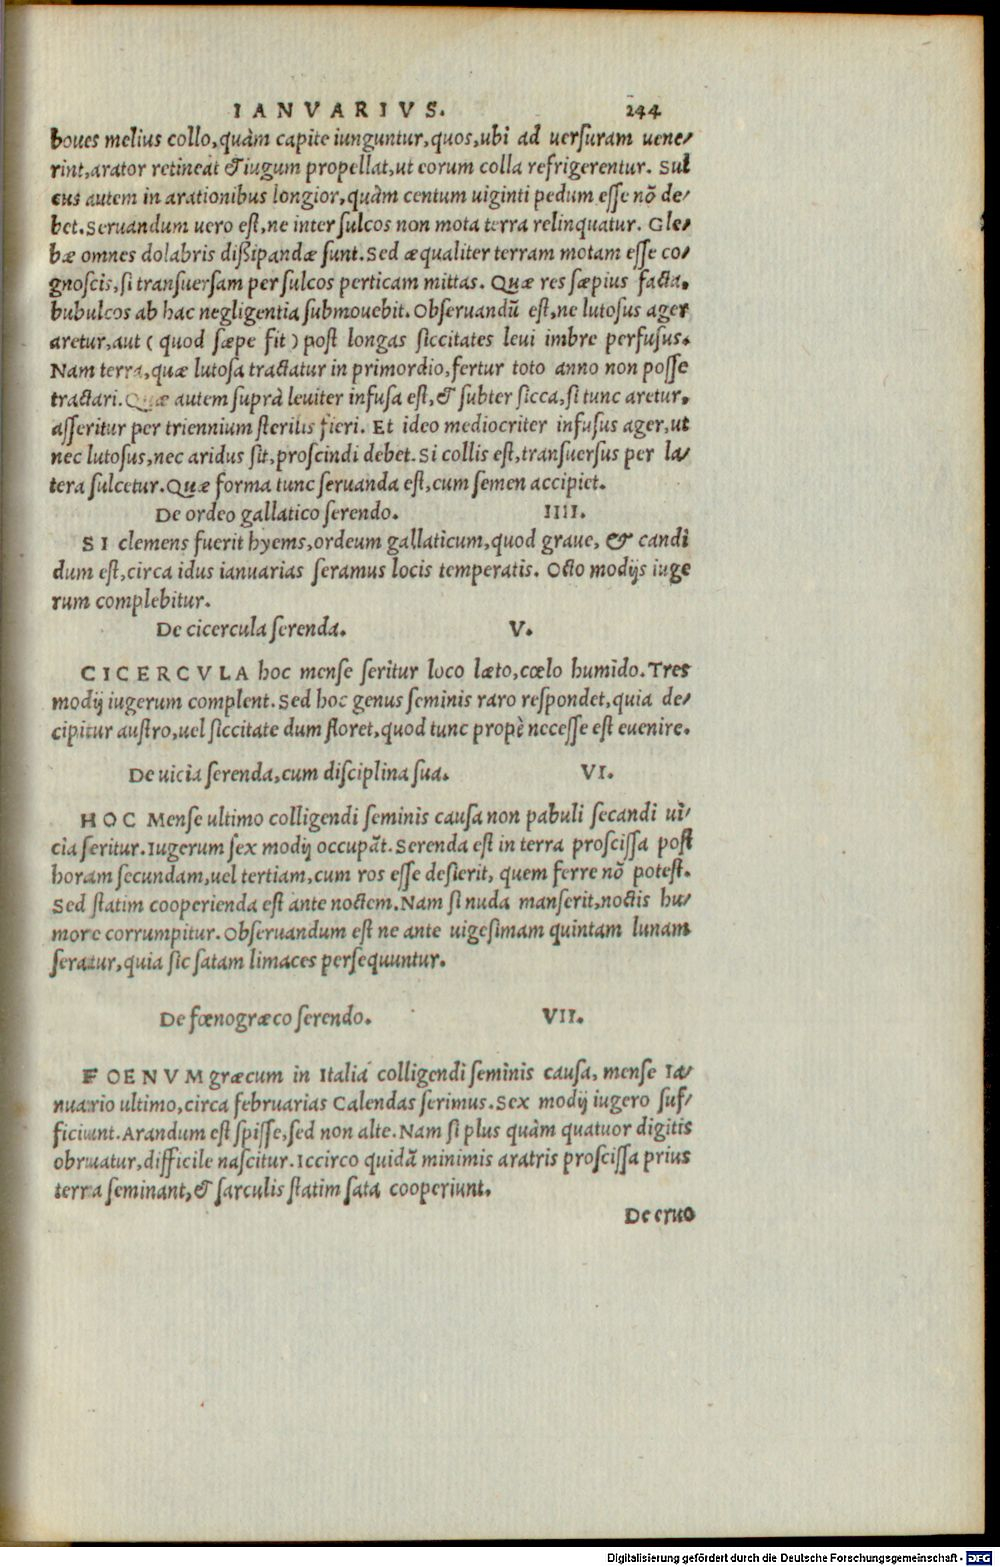 IANVARIVS. 244
boues melius collo, quàm capite iunguntur, quos, ubi ad uersuram uene/
rint, arator retineat & iugum propellat, ut eorum colla refrigerentur. Sul
cus autem in arationibus longior, quàm centum uiginti pedum esse nõ de/
bet. Seruandum uero est, ne inter sulcos non mota terra relinquatur. Gle/
bæ omnes dolabris dißipandæ sunt. Sed æqualiter terram motam esse co/
gnoscis, si transuersam per sulcos perticam mittas. Quæ res sæpius facta,
bubulcos ab hac negligentia submouebit. Obseruandũ est, ne lutosus ager
aretur, aut ( quod sæpe fit ) post longas siccitates leui imbre perfusus.
Nam terra, quæ lutosa tractatur in primordio, fertur toto anno non posse
tractari. Quæ autem suprà leuiter infusa est, & subter sicca, si tunc aretur,
asseritur per triennium sterilis fieri. Et ideo mediocriter infusus ager, ut
nec lutosus, nec aridus sit, proscindi debet. Si collis est, transuersus per la/
tera sulcetur. Quæ forma tunc seruanda est, cum semen accipiet.
De ordeo gallatico serendo. IIII.
SI clemens fuerit hyems, ordeum gallaticum, quod graue, & candi
dum est, circa idus ianuarias seramus locis temperatis. Octo modijs iuge
rum complebitur.
De cicercula serenda. V.
CICERCVLA hoc mense seritur loco læto, cœlo humido. Tres
modij iugerum complent. Sed hoc genus seminis raro respondet, quia de/
cipitur austro, uel siccitate dum floret, quod tunc propè necesse est euenire.
De uicia serenda, cum disciplina sua. VI.
HOC Mense ultimo colligendi seminis causa non pabuli secandi ui/
cia seritur. Iugerum sex modij occupãt. Serenda est in terra proscissa post
horam secundam, uel tertiam, cum ros esse desierit, quem ferre nõ potest.
Sed statim cooperienda est ante noctem. Nam si nuda manserit, noctis hu/
more corrumpitur. Obseruandum est ne ante uigesimam quintam lunam
seratur, quia sic satam limaces persequuntur.
De fœnogræco serendo. VII.
FOENVM græcum in Italia colligendi seminis causa, mense Ia/
nuario ultimo, circa februarias Calendas serimus. Sex modij iugero suf/
ficiunt. Arandum est spisse, sed non alte. Nam si plus quàm quatuor digitis
obruatur, difficile nascitur. Iccirco quidã minimis aratris proscissa prius
terra seminant, & sarculis statim sata cooperiunt.
De eruo
Digitalisierung gefördert durch die Deutsche Forschungsgemeinschaft - DFG